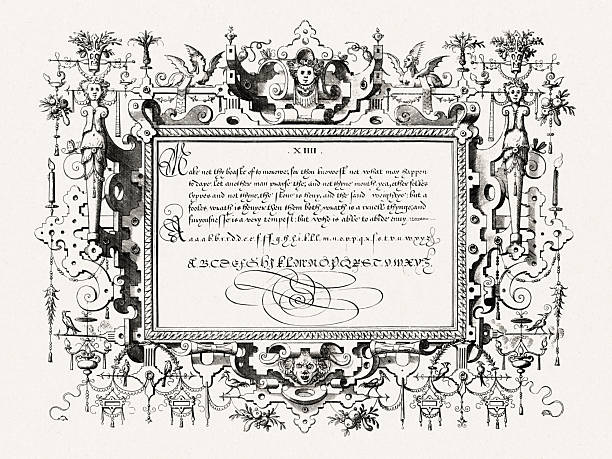 . XIIII .
Make not thy boaste of to morowe, for thou knowest not what may happen
to daye. Let another man prayse the, and not thyne mouth, yea, other folkes
lyppes and not thyne, the stone is heuy, and the sand weightye: but a
fooles wrath is heuyer then them both, wrath is a cruell thynge, and
furyousnesse is a very tempest: but who is able to abide enuy
A a a a b b c d d e e f f f g g h i k l l m n o o p p q r s t v u w x y z
A B C D E F G H I K L M N O P Q R S T V W X Y Z